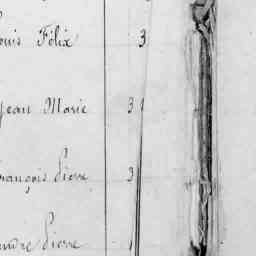 ouis Félix 3
Jean Marie 31
rançois Pierre 3
andre Pierre 1